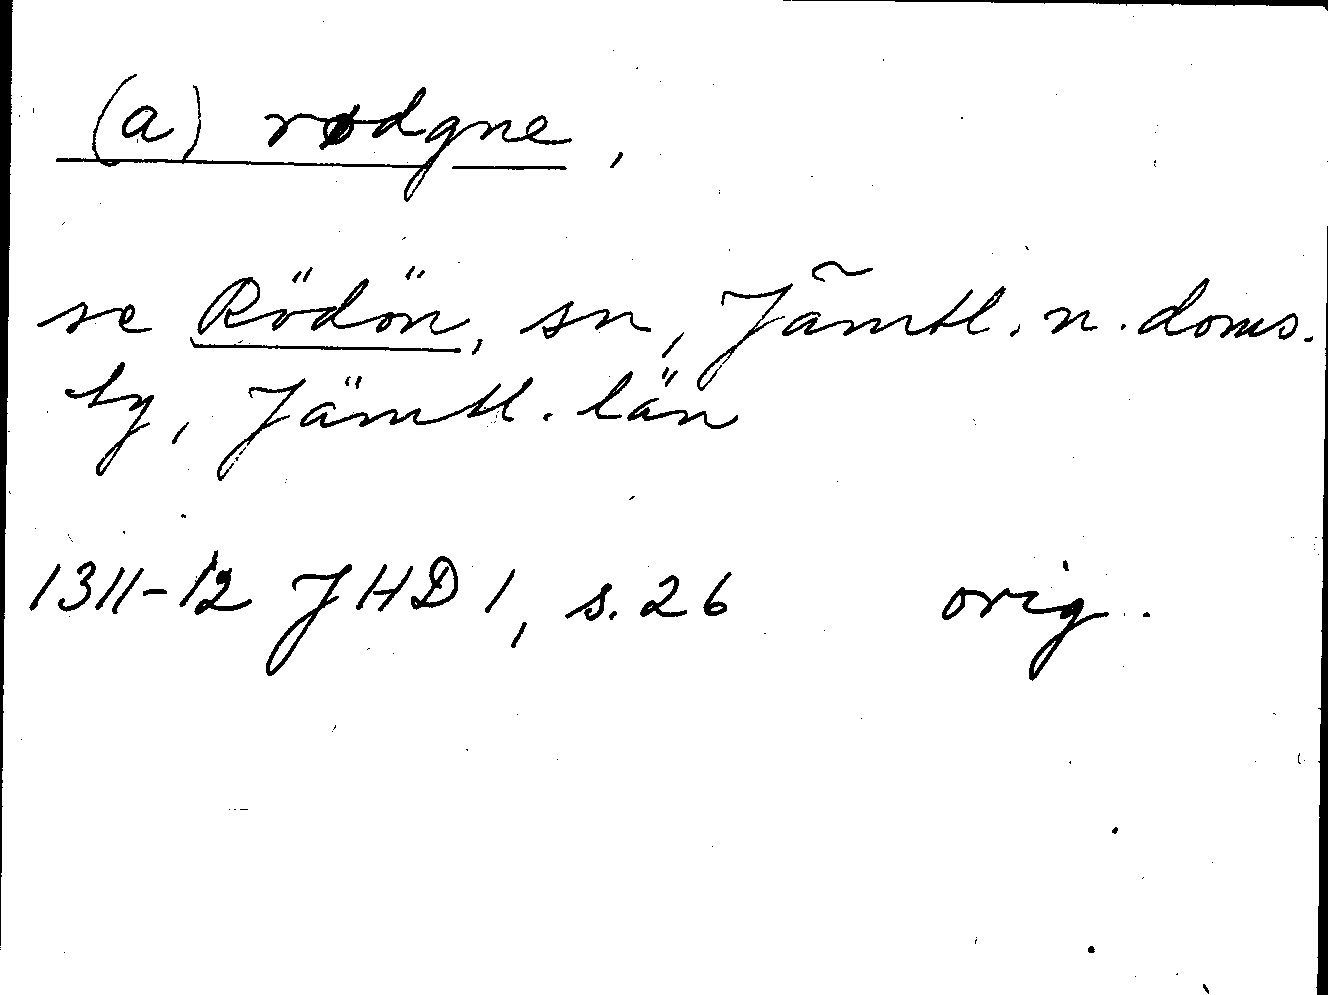 (a) rødgne,
se Rödön, sn, Jämtl. n. doms.
by, Jämtl. län
1311-12 JHD 1, s. 26 orig.